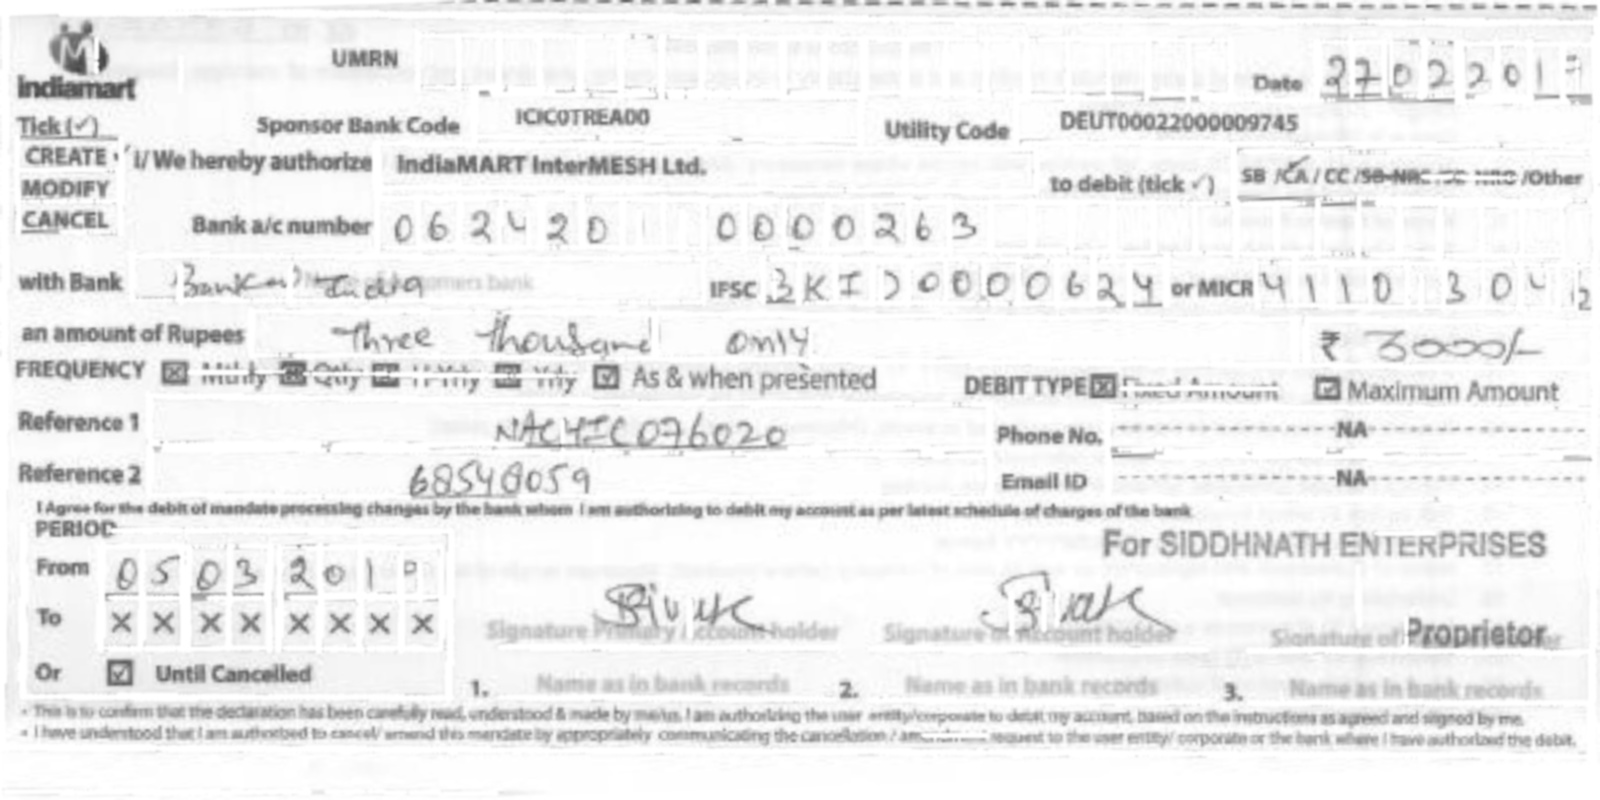 indiamart
UMRN
Date 2702201
Tick (✓)
Sponsor Bank Code ICIC0TREA00 Utility Code DEUT00022000009745
CREATE I/ We hereby authorize IndiaMART InterMESH Ltd. to debit (tick ✓) SB /CA / CC /SB-NRE /SB-NRO /Other
MODIFY
CANCEL Bank a/c number 062420 0000263
with Bank Bank of India Name of customers bank IFSC BKID0000624 or MICR 4110 304 12
an amount of Rupees Three Thousand only ₹ 3000/-
FREQUENCY Mthly Qtly H-Yrly Yrly As & when presented DEBIT TYPE Fixed Amount Maximum Amount
Reference 1 NACHEC076020 Phone No. NA
Reference 2 68548059 Email ID NA
I Agree for the debit of mandate processing charges by the bank whom I am authorizing to debit my account as per latest schedule of charges of the bank
PERIOD
For SIDDHNATH ENTERPRISES
From 0503201
To XXXXXXXX
Signature Primary Account holder Signature of Account holder Signature of Proprietor
Or Until Cancelled
1. Name as in bank records 2. Name as in bank records 3. Name as in bank records
• This is to confirm that the declaration has been carefully read, understood & made by me/us. I am authorizing the user entity/corporate to debit my account, based on the instructions as agreed and signed by me.
• I have understood that I am authorised to cancel/ amend this mandate by appropriately communicating the cancellation / amendment request to the user entity/ corporate or the bank where I have authorized the debit.